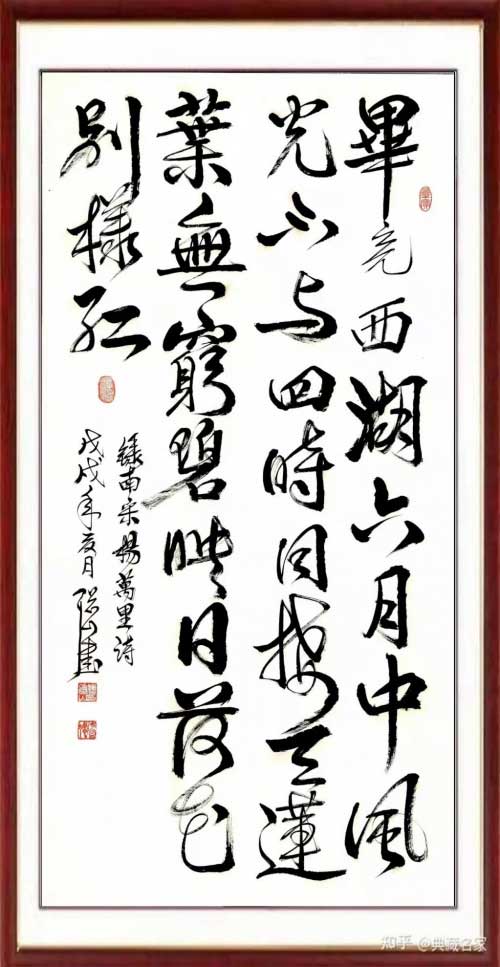 畢竟西湖六月中風
光不与四時同接天蓮
葉無窮碧映日荷花
别樣紅
録南宋楊萬里詩
戊戌年夏月 書
知乎 @典藏名家